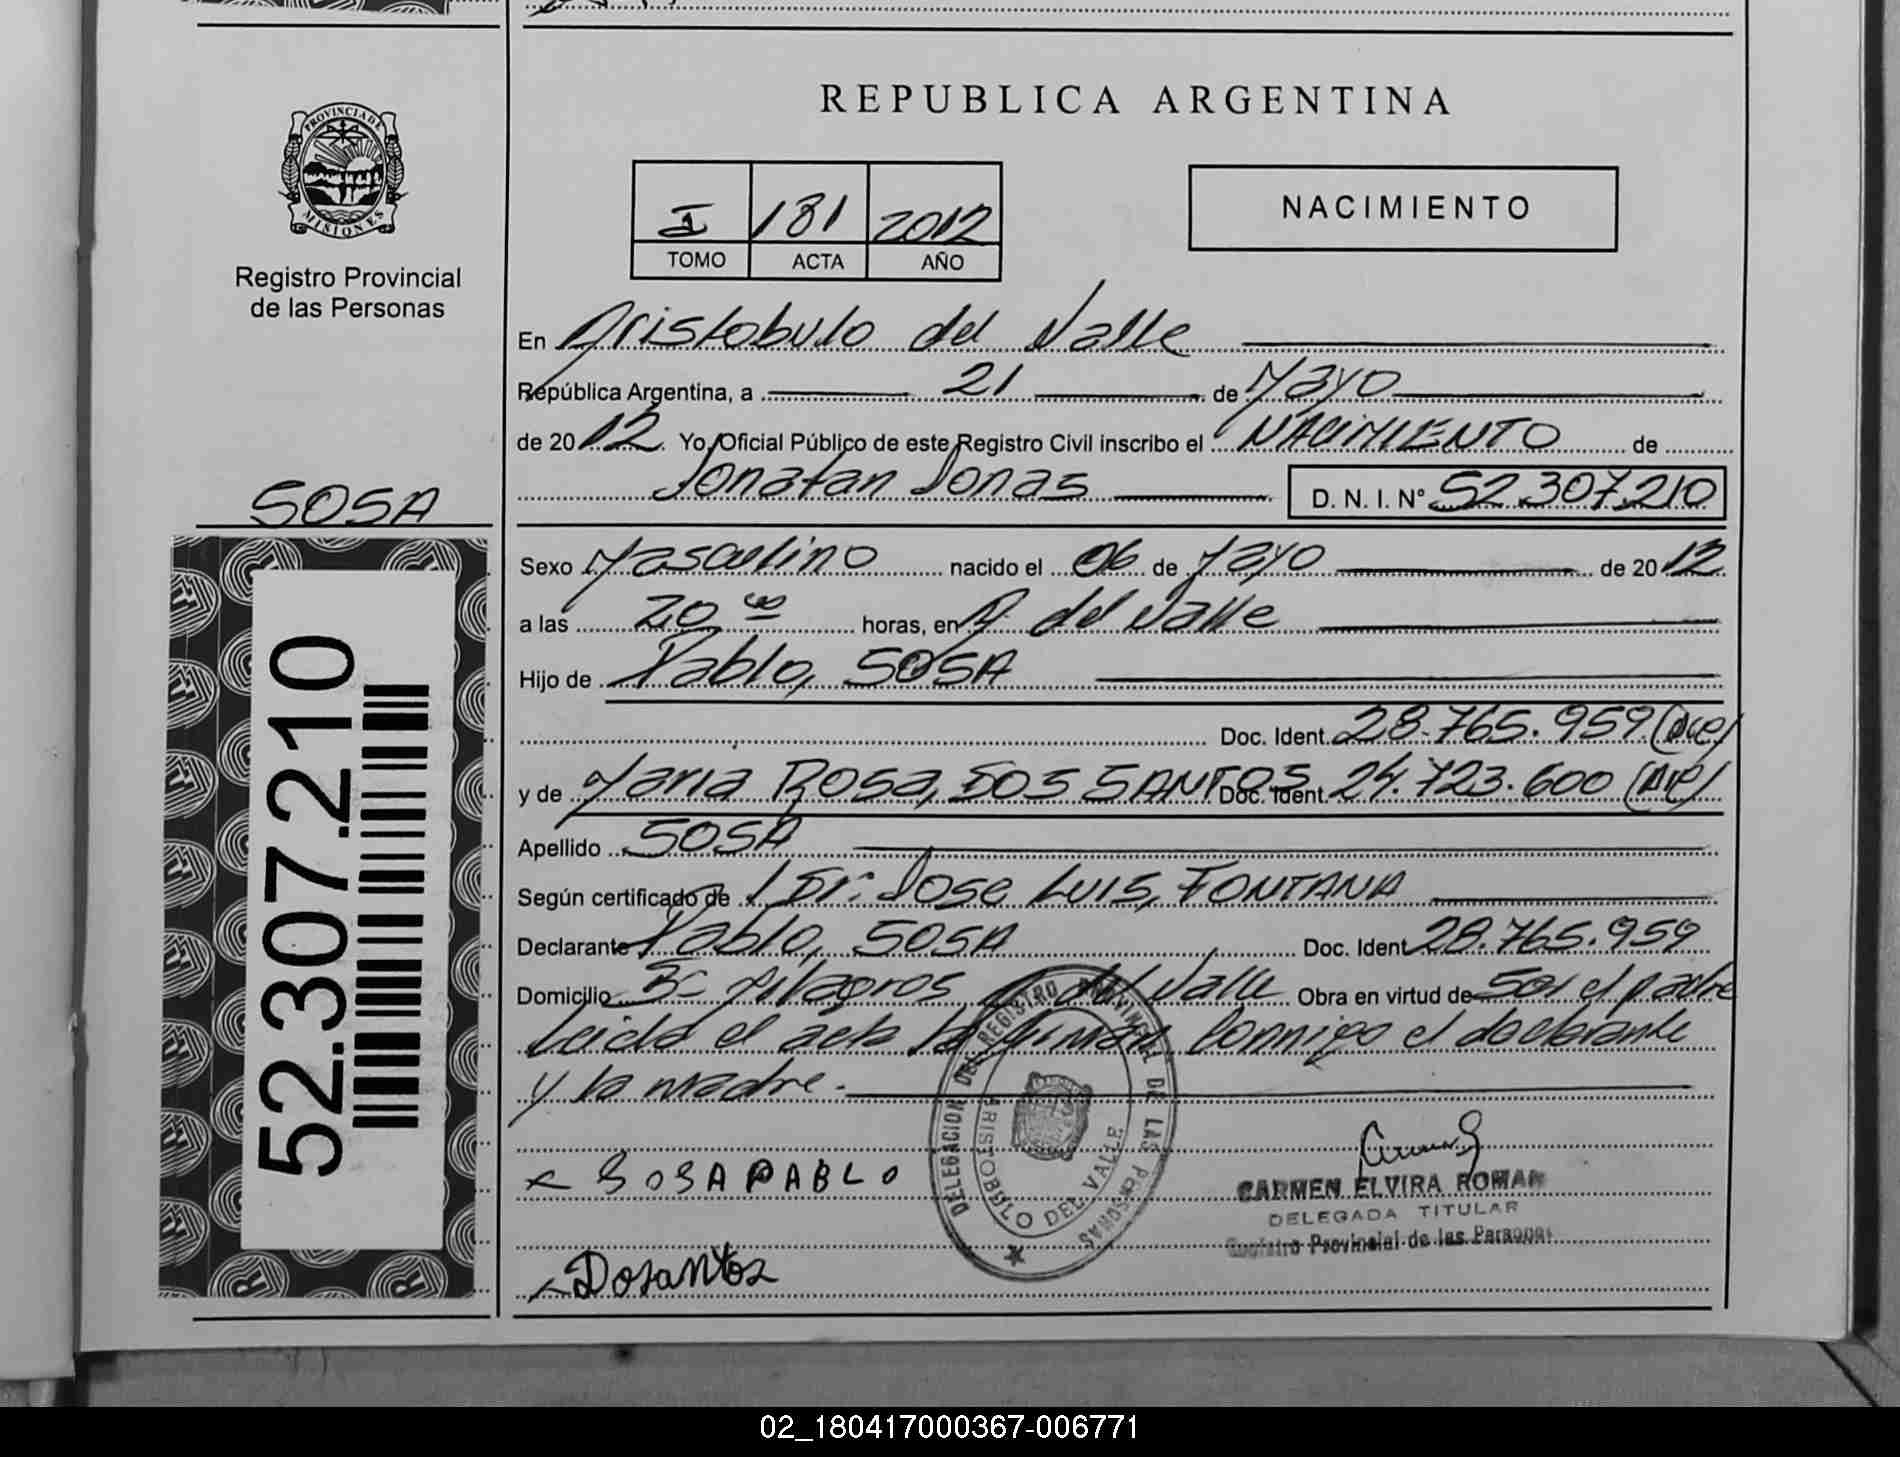 REPUBLICA ARGENTINA
PROVINCIA DE MISIONES
Registro Provincial
de las Personas
I 181 2012
TOMO ACTA AÑO
NACIMIENTO
En Aristobulo del Valle
República Argentina, a 21 de Mayo
de 2012. Yo, Oficial Público de este Registro Civil inscribo el NACIMIENTO de
Jonatan Jonas D. N. I. N° 52.307.210
SOSA
Sexo Masculino nacido el 06 de Mayo de 2012
a las 20 horas, en A. del Valle
Hijo de Pablo, SOSA
Doc. Ident. 28.765.959
y de Maria Rosa, DOS SANTOS Doc. Ident. 24.723.600
Apellido SOSA
Según certificado de Dr. Jose LUIS, FONTANA
Declarante Pablo, SOSA Doc. Ident. 28.765.959
Domicilio Milagros A. del Valle Obra en virtud de Ser el padre
Leida el acta la firman Conmigo el declarante
y la madre.
52.307.210
DELEGACION DEL REGISTRO PROVINCIAL DE LAS PERSONAS
ARISTOBULO DEL VALLE
x SOSA PABLO
CARMEN ELVIRA ROMAN
DELEGADA TITULAR
Registro Provincial de las Personas
x Dosantos
02_180417000367-006771